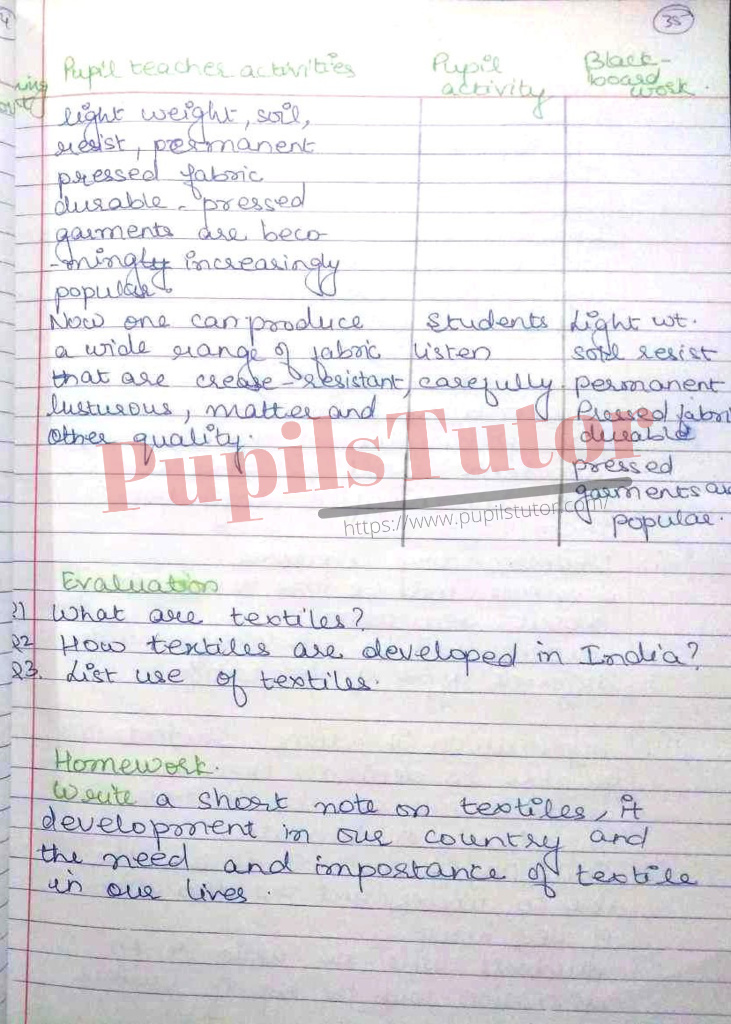 4
35
ing
Pupil teacher activities
Pupil
activity
Black-
board
work.
light weight, soil,
resist, permanent
pressed fabric
durable - pressed
garments are beco
-mingly increasingly
popular.
Now one can produce
a wide range of fabric
that are crease-resistant,
lusturous, matter and
other quality.
Students
listen
carefully.
Light wt.
soil resist
permanent
Pressed fabri
durable
pressed
garments are
popular.
PupilsTutor
https://www.pupilstutor.com/
Evaluation
Q1 What are textiles?
Q2 How textiles are developed in India?
Q3. List use of textiles.
Homework.
Write a short note on textiles, it
development in our country and
the need and importance of textile
in our lives.